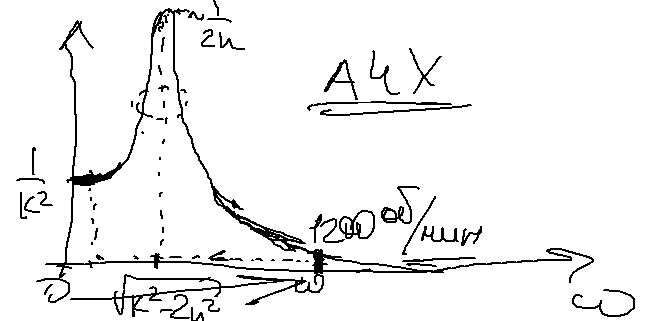 1/2h
АЧХ
1/k²
1200 об/мин
0
√k²-2h²
ω
ω